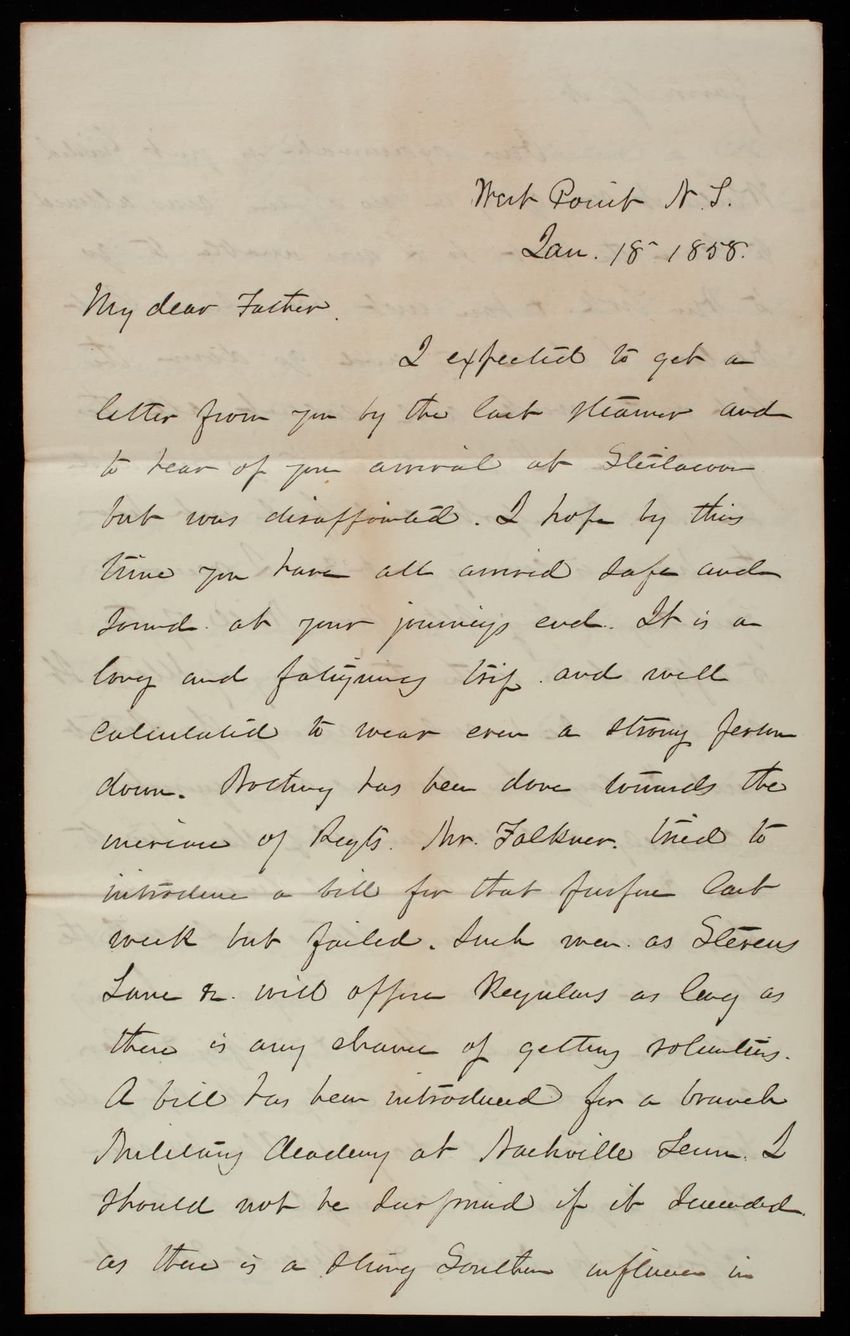 West Point N.Y.
Jan. 18 1858.
My dear Father.
I expected to get a
letter from you by the last steamer and
to hear of your arrival at Steilacoom
but was disappointed. I hope by this
time you have all arrived safe and
sound at your journeys end. It is a
long and fatiguing trip and well
calculated to wear even a strong person
down. Nothing has been done towards the
increase of Regts. Mr. Falkner. tried to
introduce a bill for that purpose last
week but failed. Such men as Stevens
Lane &c. will oppose Regulars as long as
there is any chance of getting volunteers.
A bill has been introduced for a branch
Military Academy at Nashville Tenn. I
should not be surprised if it succeeded
as there is a strong Southern influence in